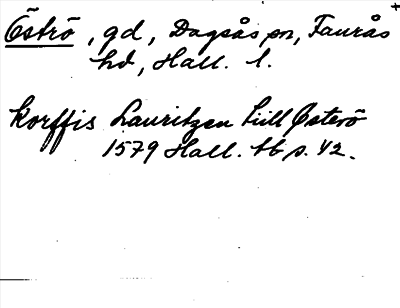 Öströ, gd, Dagsås sn, Faurås +
hd, Hall. l.
Korffis Lauritzen till Østerö
1579 Hall. bb s. 42.